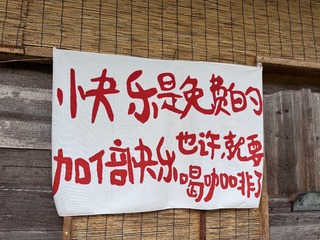 快乐是免费的
加倍快乐也许就要
喝咖啡了